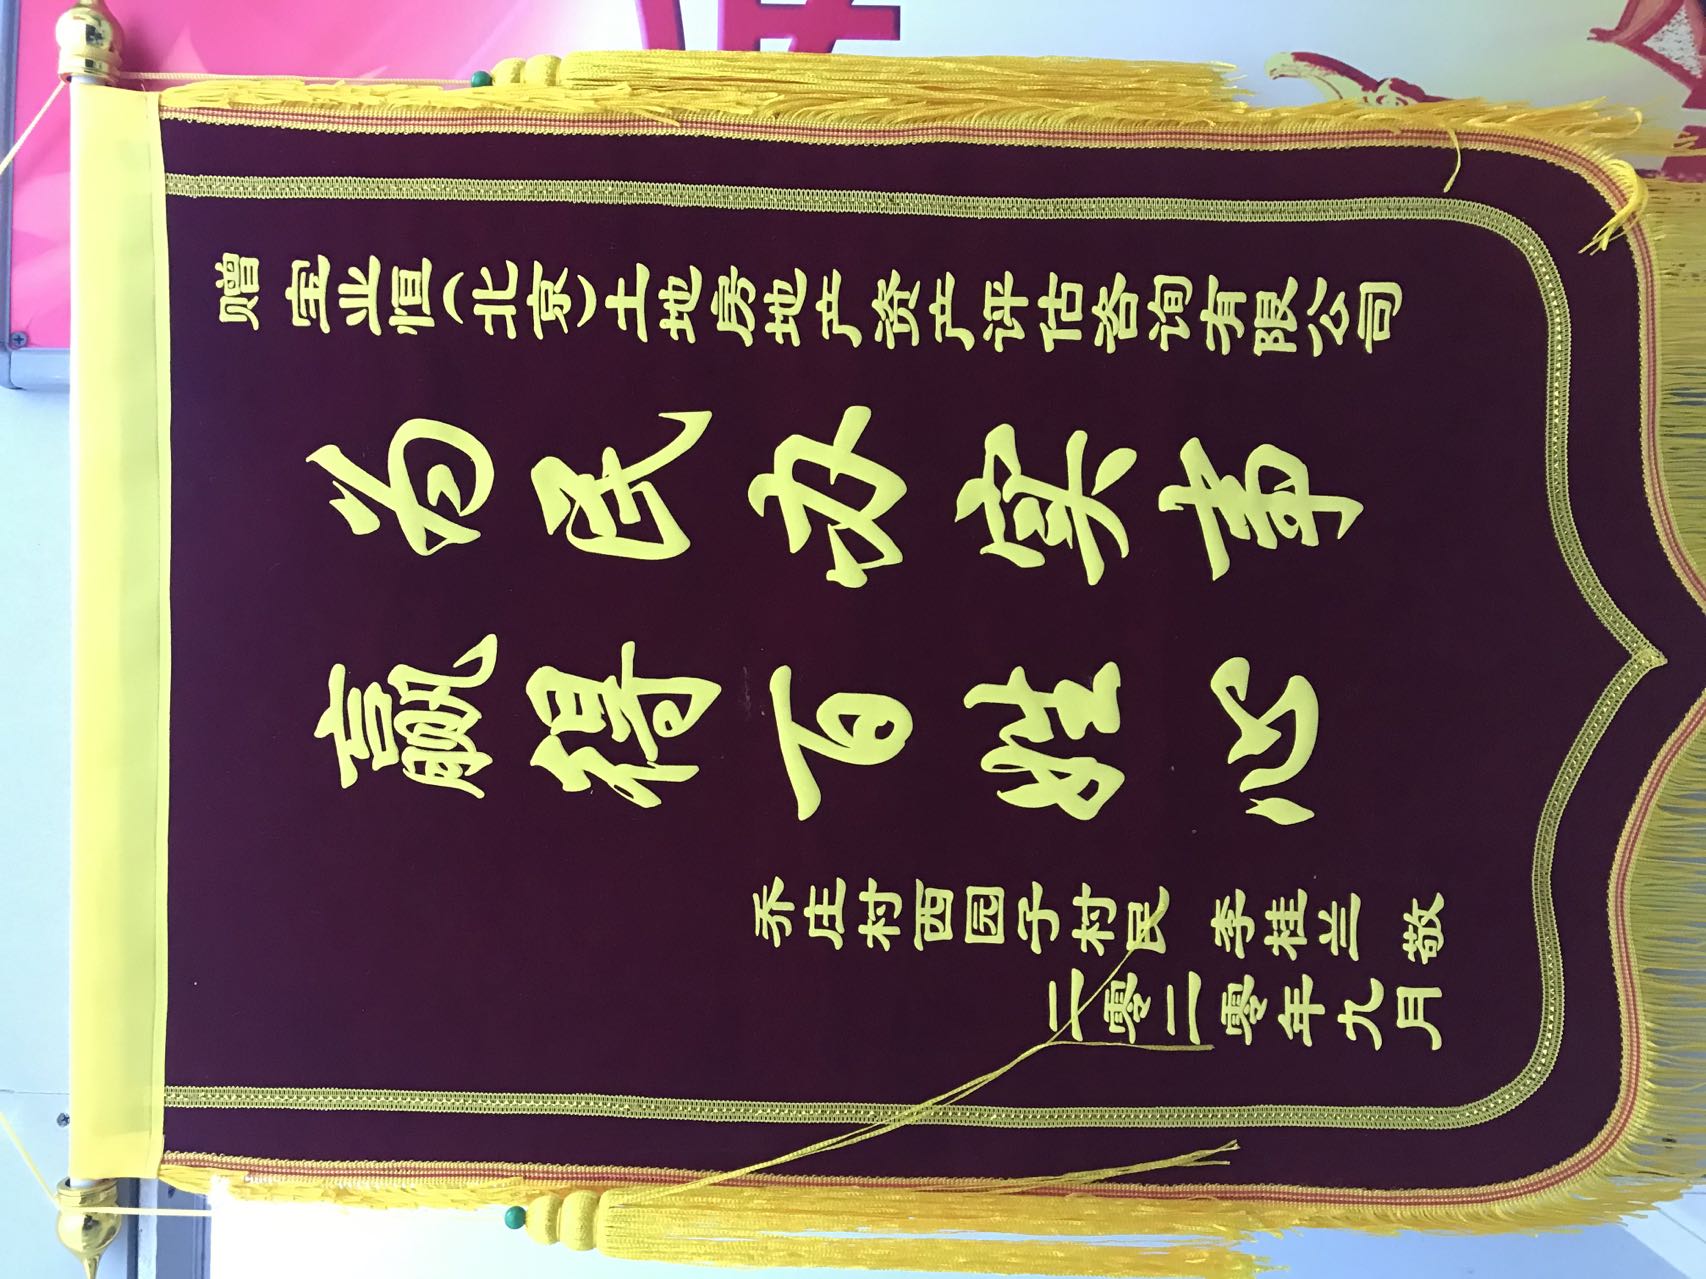 赠 宝业恒(北京)土地房地产资产评估咨询有限公司
为民办实事
赢得百姓心
乔庄村西园子村民 李桂兰 敬
二零二零年九月